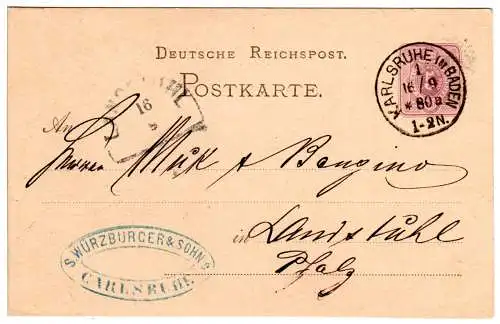 DEUTSCHE REICHSPOST.
POSTKARTE.
KARLSRUHE IN BADEN
1
16 9
* 80 a
1-2N.
16
An
Herren Muk & Bangino
in Landstuhl
Pfalz
S. WÜRZBURGER & SOHN
CARLSRUHE.